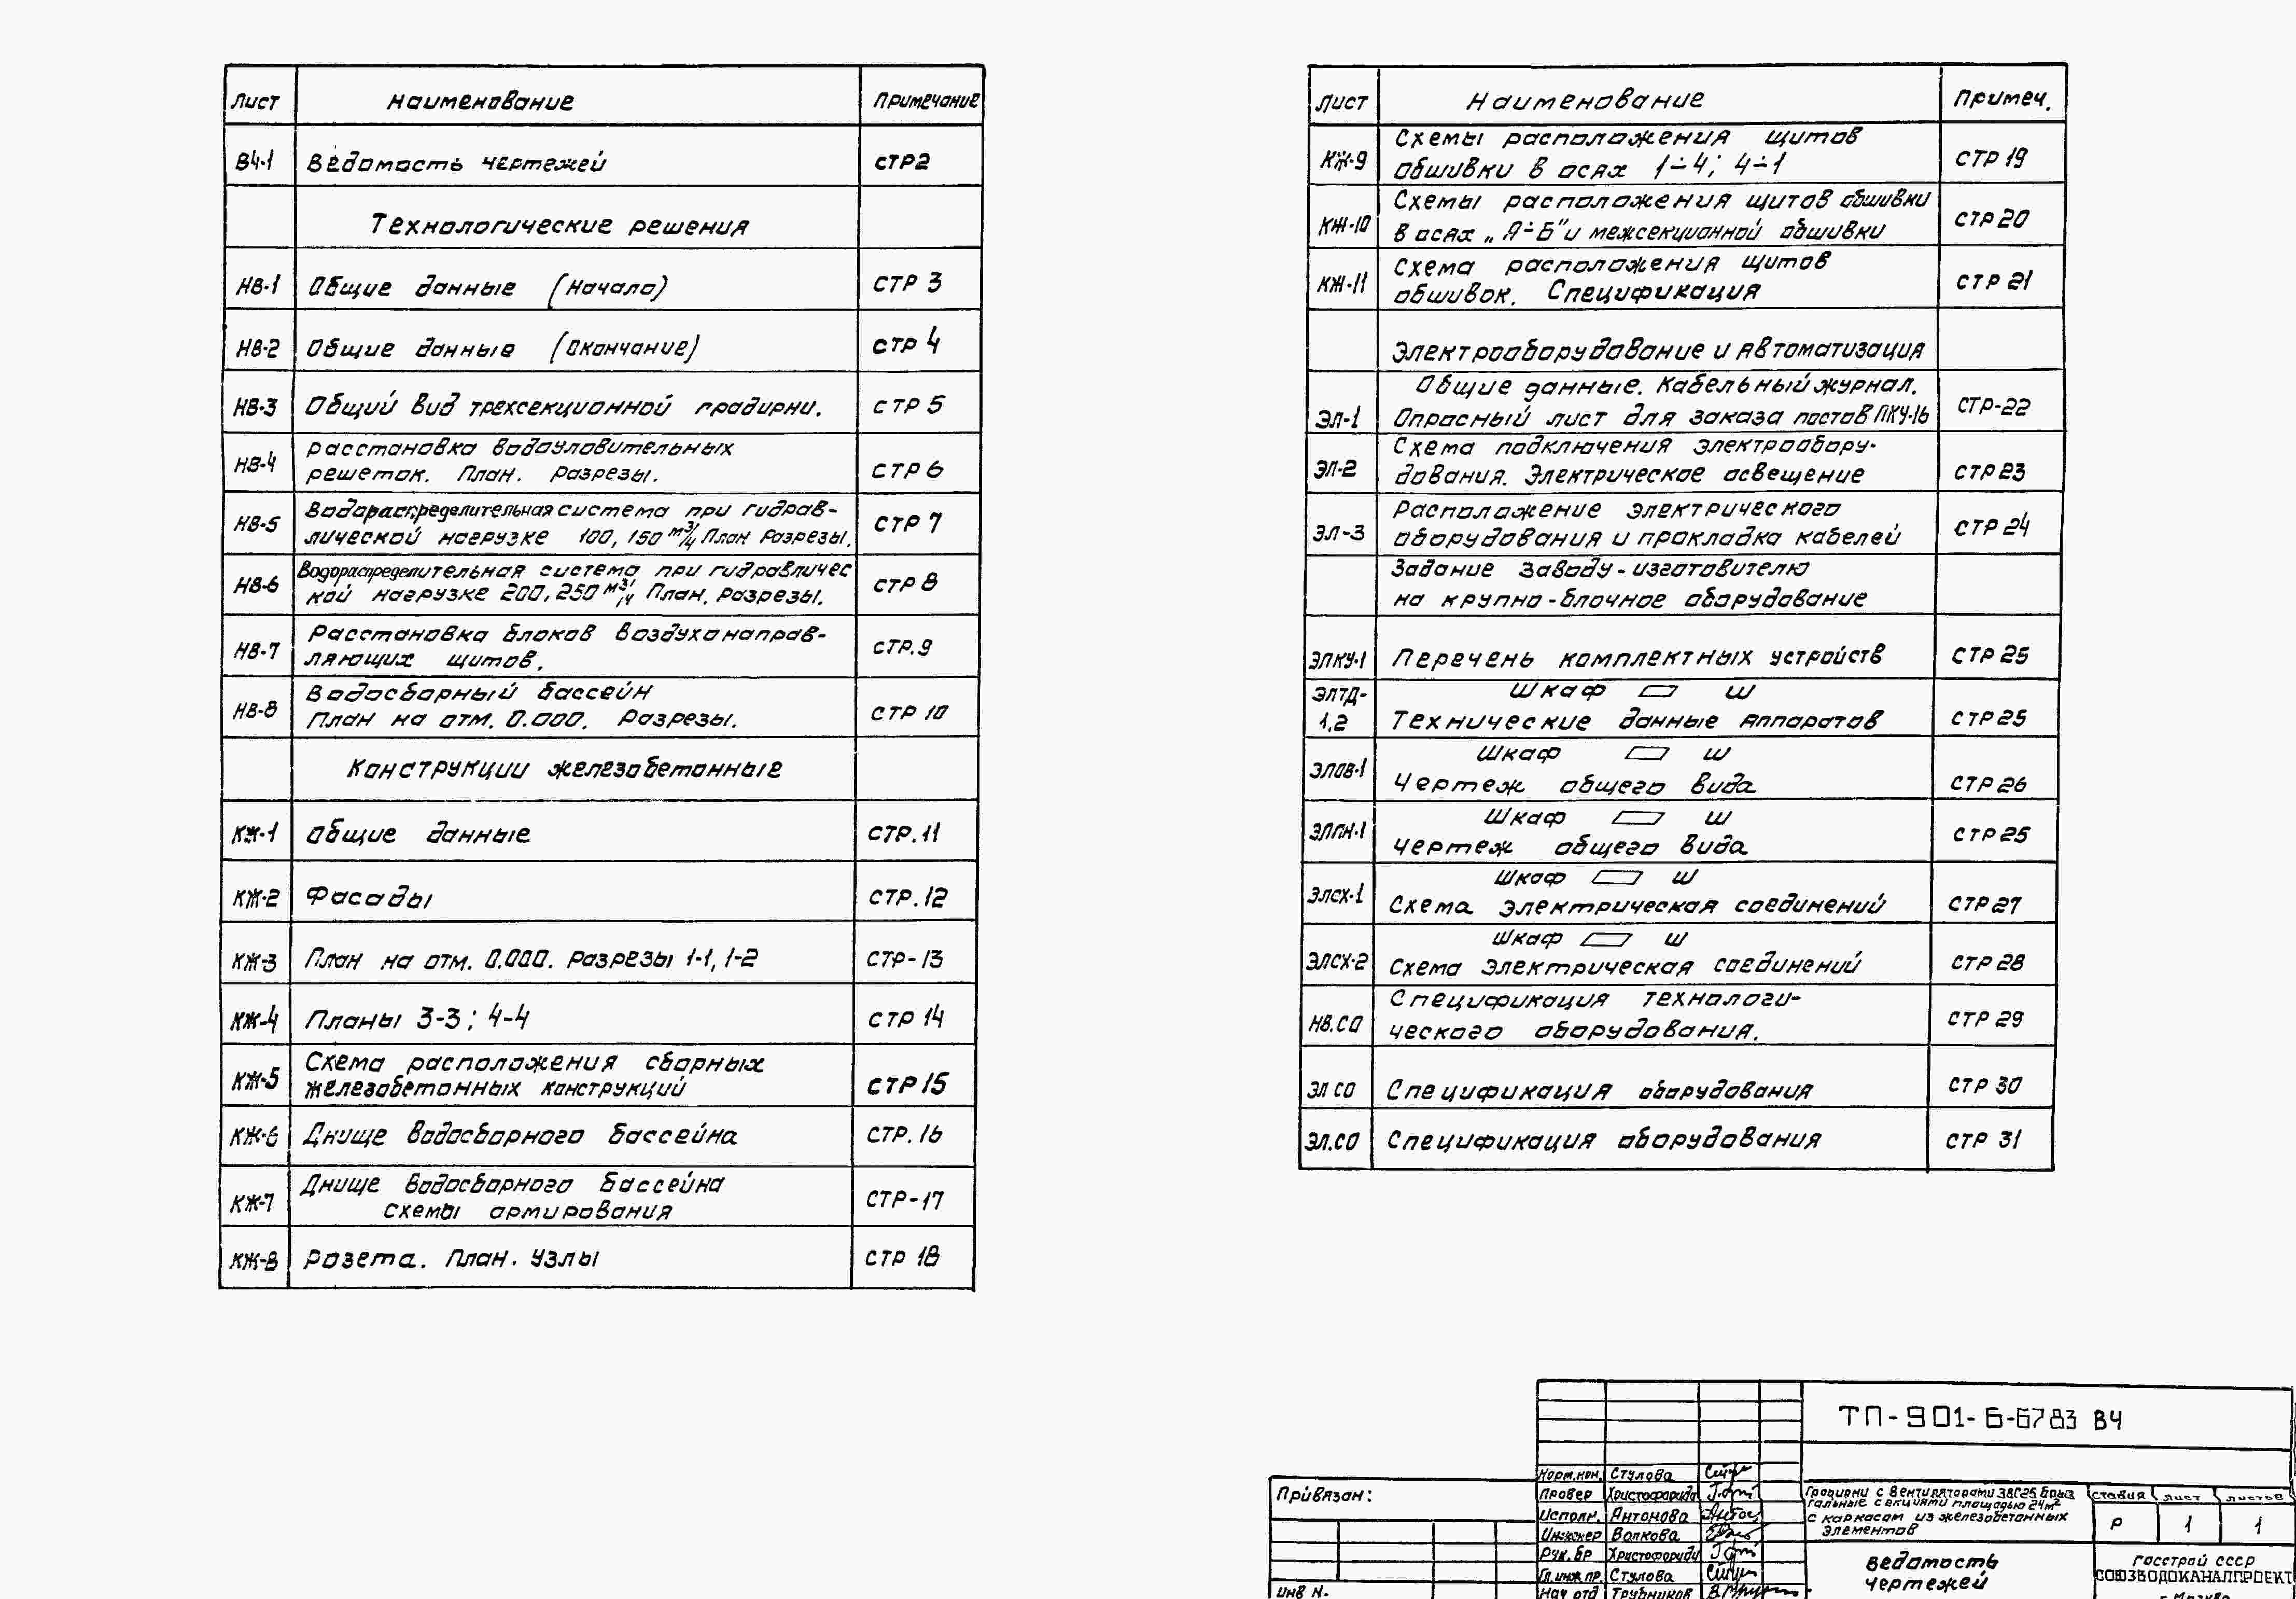 Лист Наименование Примечание
ВЧ-1 Ведомость чертежей СТР2
Технологические решения
НВ-1 Общие данные (Начало) СТР 3
НВ-2 Общие данные (Окончание) СТР 4
НВ-3 Общий вид трехсекционной градирни. СТР 5
НВ-4 Расстановка водоуловительных
решеток. План. Разрезы. СТР 6
НВ-5 Водораспределительная система при гидрав-
лической нагрузке 100, 150 м³/ч План Разрезы. СТР 7
НВ-6 Водораспределительная система при гидравличес
кой нагрузке 200, 250 м³/ч План. Разрезы. СТР 8
НВ-7 Расстановка блоков воздухонаправ-
ляющих щитов. СТР.9
НВ-8 Водосборный бассейн
План на отм. 0.000. Разрезы. СТР 10
Конструкции железобетонные
КЖ-1 Общие данные СТР.11
КЖ-2 Фасады СТР.12
КЖ-3 План на отм. 0.000. Разрезы 1-1, 1-2 СТР-13
КЖ-4 Планы 3-3; 4-4 СТР 14
КЖ-5 Схема расположения сборных
железобетонных конструкций СТР15
КЖ-6 Днище водосборного бассейна СТР.16
КЖ-7 Днище водосборного бассейна
схемы армирования СТР-17
КЖ-8 Розета. План. Узлы СТР 18
Лист Наименование Примеч.
КЖ-9 Схемы расположения щитов
обшивки в осях 1÷4; 4÷1 СТР 19
КЖ-10 Схемы расположения щитов обшивки
в осях „А÷Б" и межсекционной обшивки СТР 20
КЖ-11 Схема расположения щитов
обшивок. Спецификация СТР 21
Электрооборудование и автоматизация
ЭЛ-1 Общие данные. Кабельный журнал.
Опросный лист для заказа постов ПКУ-16 СТР-22
ЭЛ-2 Схема подключения электрообору-
дования. Электрическое освещение СТР 23
ЭЛ-3 Расположение электрического
оборудования и прокладка кабелей СТР 24
Задание заводу-изготовителю
на крупно-блочное оборудование
ЭЛКУ-1 Перечень комплектных устройств СТР 25
ЭЛТД-
1,2 Шкаф ▱ Ш
Технические данные аппаратов СТР 25
ЭЛОВ-1 Шкаф ▱ Ш
Чертеж общего вида СТР 26
ЭЛПН-1 Шкаф ▱ Ш
Чертеж общего вида СТР 25
ЭЛСХ-1 Шкаф ▱ Ш
Схема электрическая соединений СТР 27
ЭЛСХ-2 Шкаф ▱ Ш
Схема электрическая соединений СТР 28
НВ.СО Спецификация технологи-
ческого оборудования. СТР 29
ЭЛ СО Спецификация оборудования СТР 30
ЭЛ.СО Спецификация оборудования СТР 31
ТП-901-6-6783 ВЧ
Привязан:
Инв N.
Норм.кон. Стулова
Провер Христофориди
Исполн. Антонова
Инженер Волкова
Рук.бр Христофориди
Гл.инж.пр. Стулова
Нач отд Трубников
Градирни с вентиляторами 3ВГ25 брыз
гальные с секциями площадью 24м²
с каркасом из железобетонных
элементов
Стадия Лист Листов
Р 1 1
Ведомость
чертежей
Госстрой СССР
СОЮЗВОДОКАНАЛПРОЕКТ
г. Москва